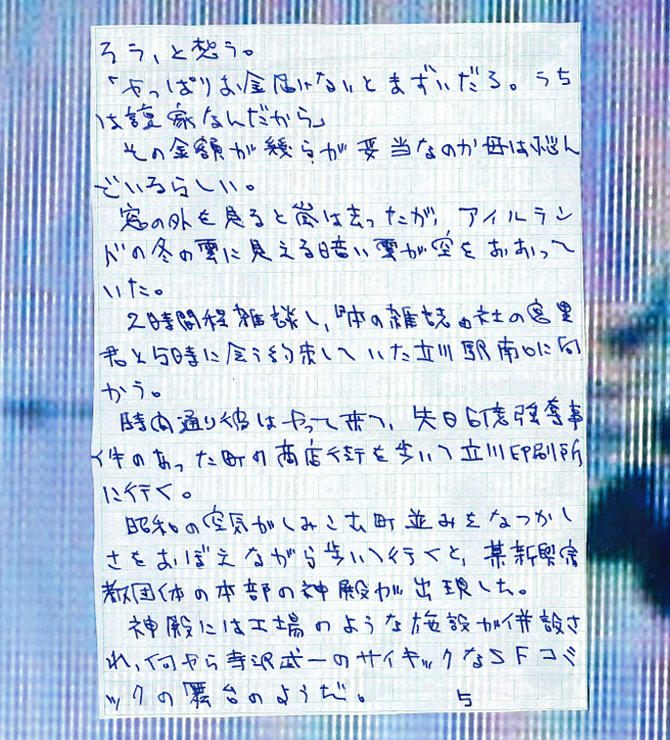 ろう、と想う。
「やっぱりお金届けないとまずいだろ。うち
は檀家なんだから」
その金額が幾らが妥当なのか母は悩ん
でいるらしい。
窓の外を見ると嵐は去ったが、アイルラン
ドの冬の雲に見える暗い雲が空をおおって
いた。
2時間程雑談し、『体の雑誌』社の宮里
君と5時に会う約束していた立川駅南口に向
かう。
時間通り彼はやって来て、先日6億強奪事
件のあった町の商店街を歩いて立川印刷所
に行く。
昭和の空気がしみこむ町並みをなつかし
さをおぼえながら歩いて行くと、某新興宗
教団体の本部の神殿が出現した。
神殿には工場のような施設が併設さ
れ、何やら寺沢武一のサイキックなSFコミ
ックの舞台のようだ。
5